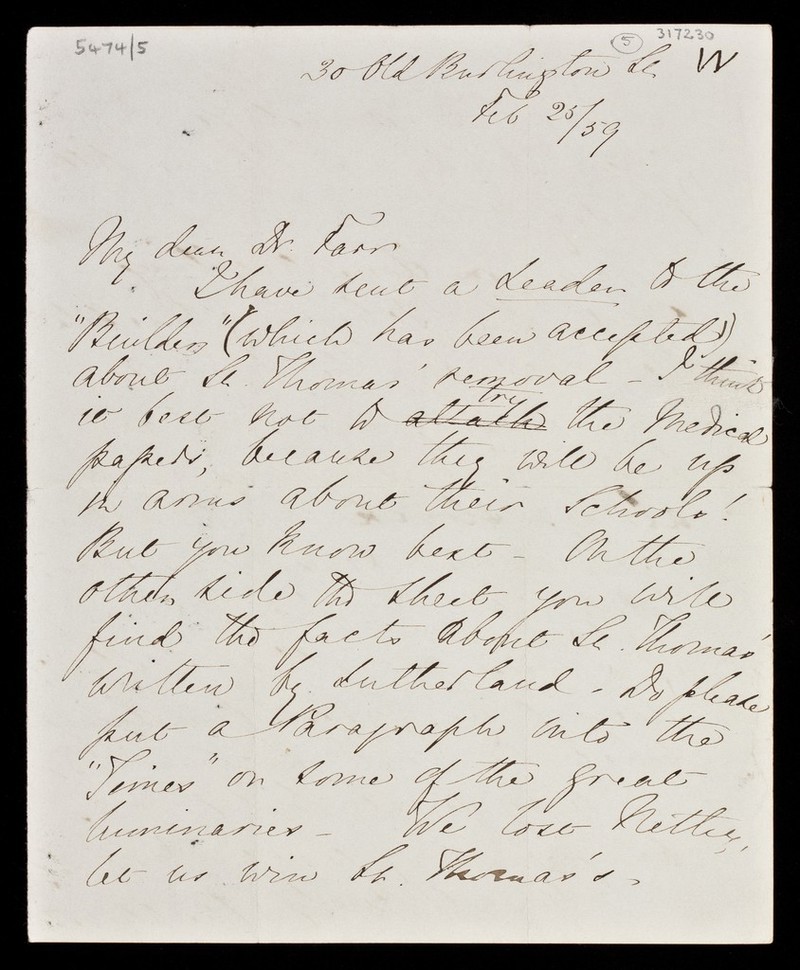 5474/5
5 317230
30 Old Burlington St W
Feb 25/59
My dear Dr. Farr
I have sent a Leader to the
"Builder" (which has been accepted)
about St. Thomas' removal - I think
it best not to attack try the Medical
papers, because they will be up
in arms about their Schools!
But you know best - On the
other side this sheet you will
find the facts about St. Thomas'
written by Sutherland - Do please
put a Paragraph into the
"Times" or some of the great
luminaries - We lost Netley,
let us win St. Thomas's.